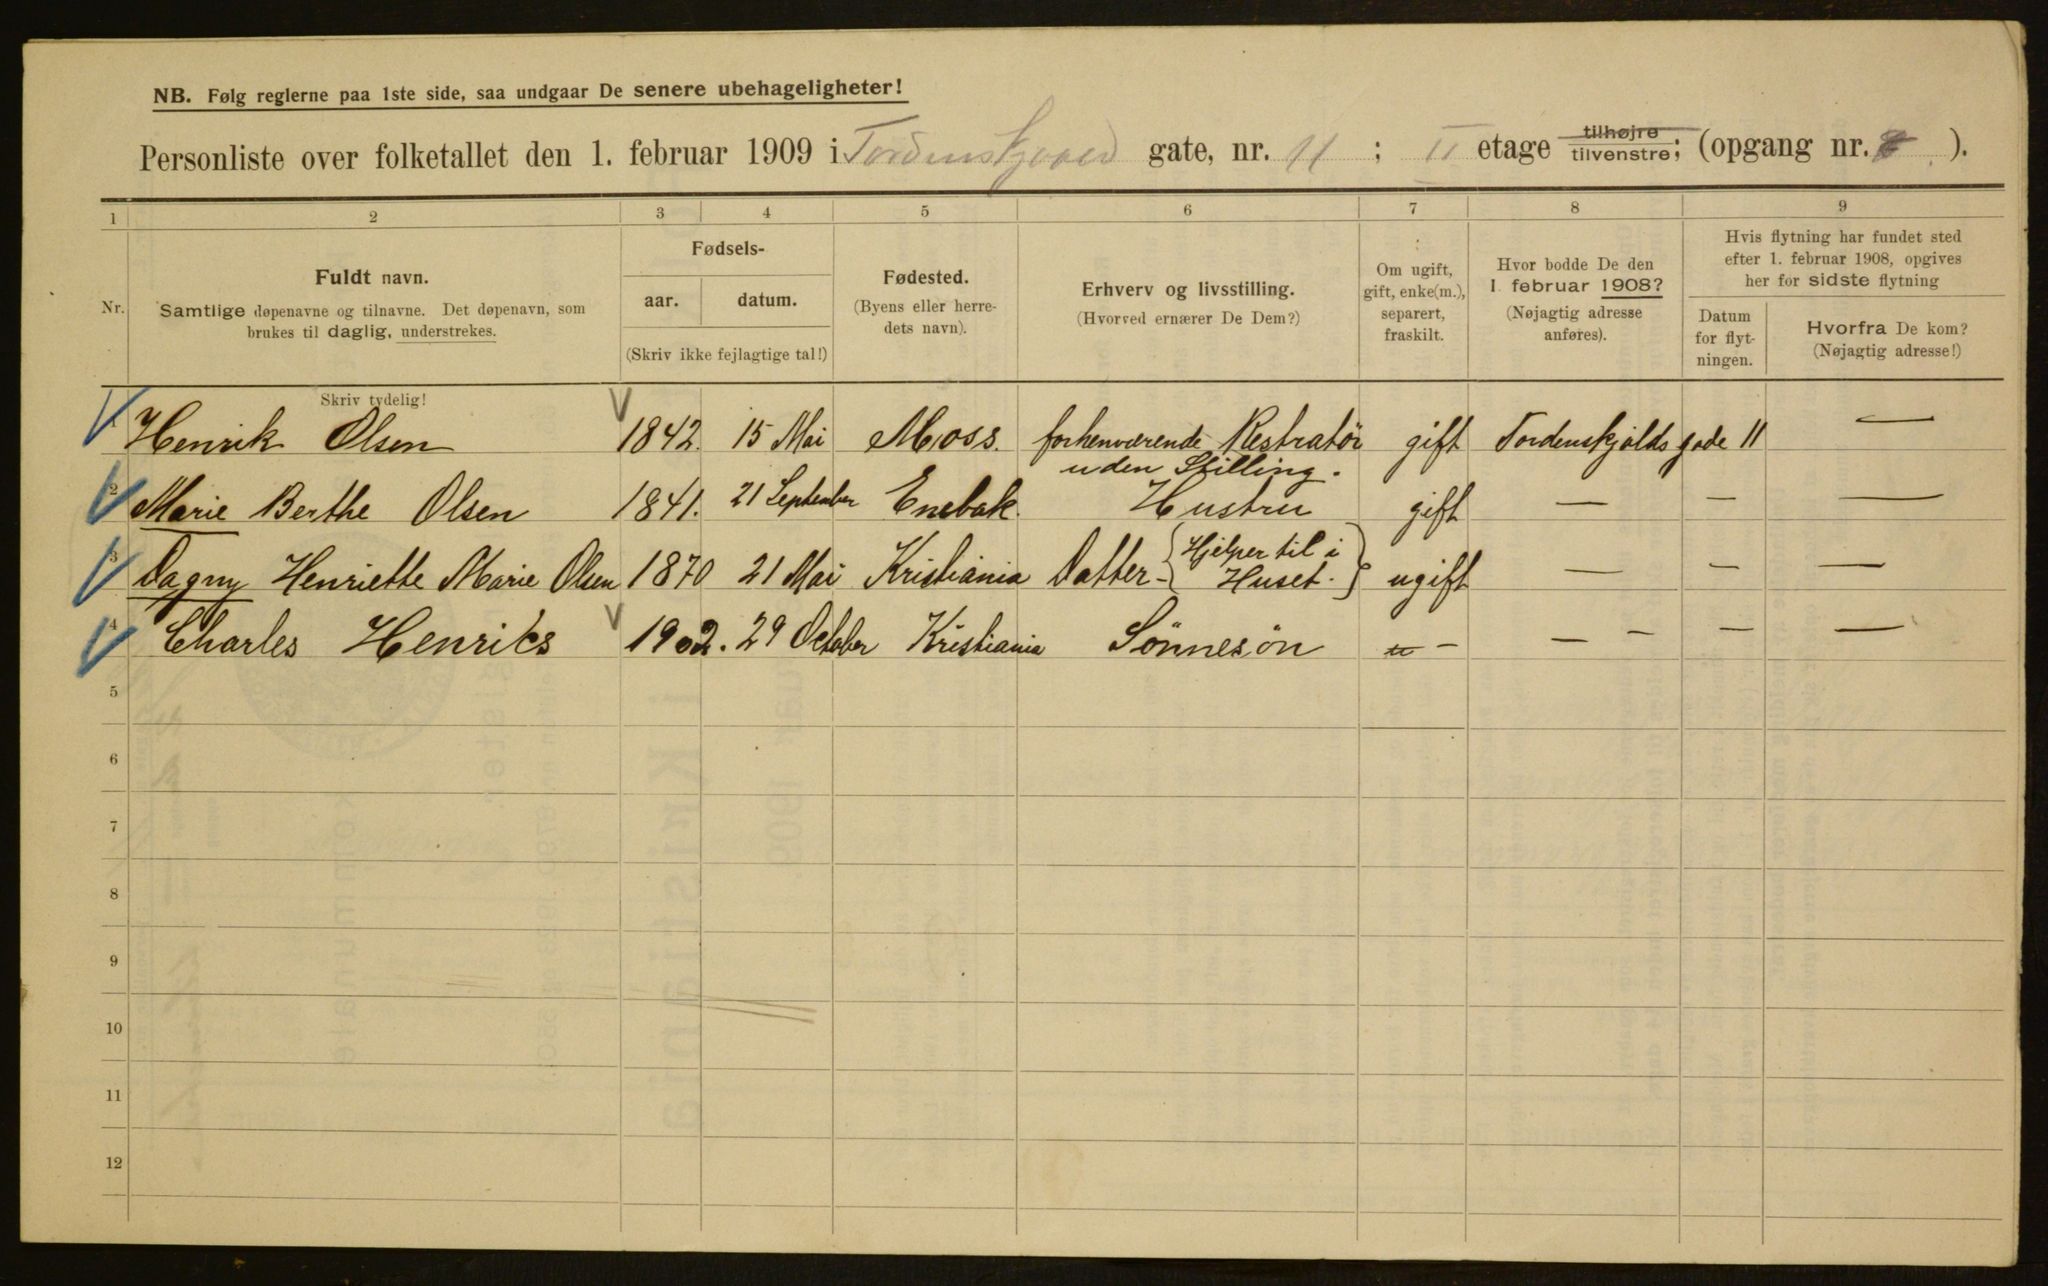 NB. Følg reglerne paa 1ste side, saa undgaar De senere ubehageligheter!
Personliste over folketallet den 1. februar 1909 i Tordenskjold gate, nr. 11 ; II etage tilhøjre tilvenstre; (opgang nr. ).
1 2 3 4 5 6 7 8 9
Nr.
Fuldt navn.
Samtlige døpenavne og tilnavne. Det døpenavn, som
brukes til daglig, understrekes.
Skriv tydelig!
Fødsels-
aar. datum.
(Skriv ikke fejlagtige tal!)
Fødested.
(Byens eller herre-
dets navn).
Erhverv og livsstilling.
(Hvorved ernærer De Dem?)
Om ugift,
gift, enke(m.),
separert,
fraskilt.
Hvor bodde De den
1. februar 1908?
(Nøjagtig adresse
anføres).
Hvis flytning har fundet sted
efter 1. februar 1908, opgives
her for sidste flytning
Datum
for flyt-
ningen.
Hvorfra De kom?
(Nøjagtig adresse!)
Henrik Olsen 1842. 15 Mai Moss. forhenværende Restratör gift Tordenskjolds gade 11 —
uden Stilling.
2 Marie Berthe Olsen 1841. 21 September Enebak. Hustru gift — — —
3 Dagny Henriette Marie Olsen 1870 21 Mai Kristiania Datter - { Hjelper til i Huset. } ugift — — —
4 Charles Henriks 1902. 29 October Kristiania Sönnesön u - — — — —
5
6
7
8
9
10
11
12